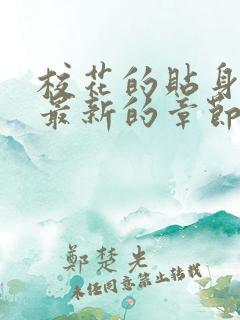 校花的貼身
最新的章節
鄭楚光
未经同意禁止转载